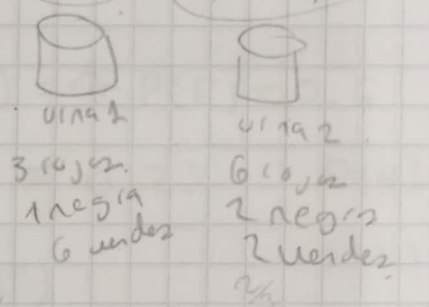 urna 1
3 rojas
1 negra
6 verdes
urna 2
6 rojas
2 negras
2 verdes